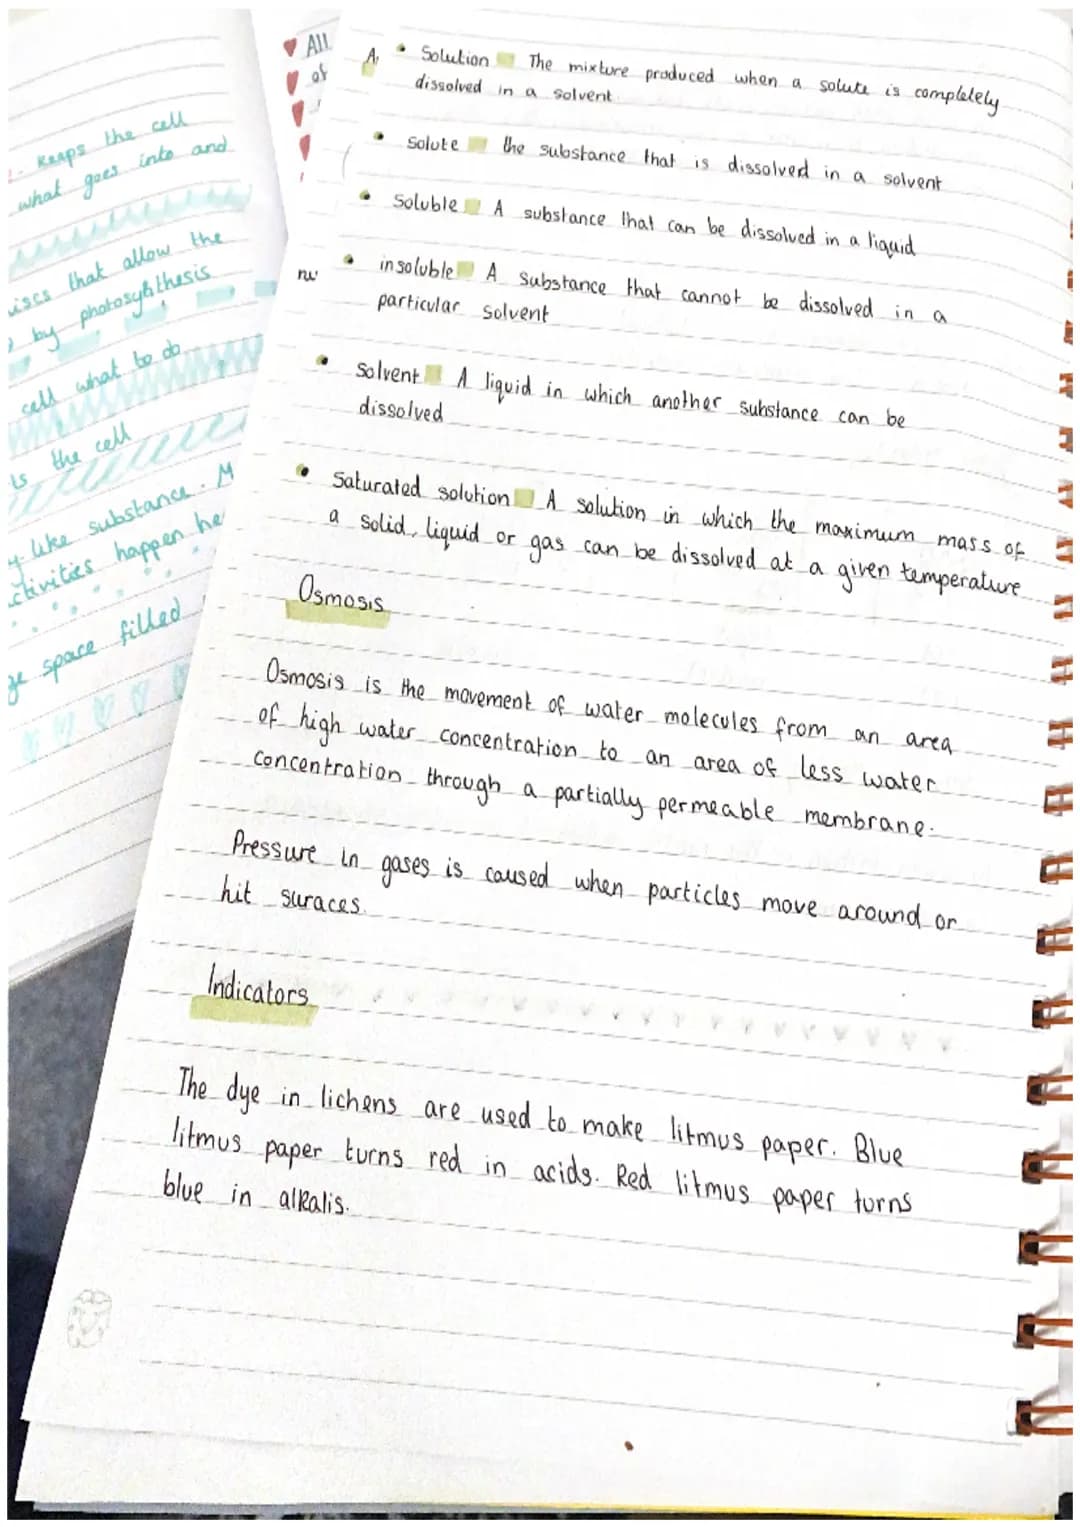 Keeps the cell
what goes into and
that allow the
by photosythesis
cell what to do
the cell
like substance. M
happen he
space filled
All
of
Solution The mixture produced when a solute is completely
dissolved in a solvent
Solute the substance that is dissolved in a solvent
Soluble A substance that can be dissolved in a liquid
insoluble A substance that cannot be dissolved in a
particular solvent
Solvent A liquid in which another substance can be
dissolved
Saturated solution A solution in which the maximum mass of
a solid, liquid or gas can be dissolved at a given temperature
Osmosis
Osmosis is the movement of water molecules from an area
of high water concentration to an area of less water
concentration through a partially permeable membrane.
Pressure in gases is caused when particles move around or
hit suraces.
Indicators
The dye in lichens are used to make litmus paper. Blue
litmus paper turns red in acids. Red litmus paper turns
blue in alkalis.